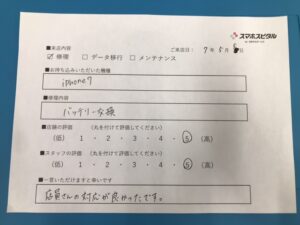 スマホスピタル
■来店内容
ご来店日: 7年5月6日
☑修理 □データ移行 □メンテナンス
■お持ち込みいただいた機種
iphone7
■修理内容
バッテリー交換
■店舗の評価 (丸を付けて評価してください)
(低) 1・2・3・4・5 (高)
■スタッフの評価 (丸を付けて評価してください)
(低) 1・2・3・4・5 (高)
■一言いただけますと幸いです
店員さんの対応が良かったです。